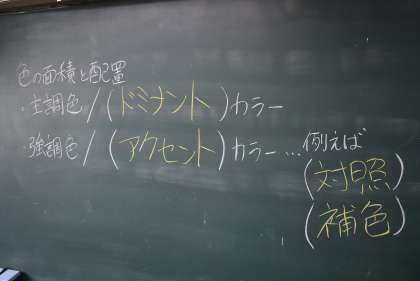 色の面積と配置
・主調色/(ドミナント)カラー
・強調色/(アクセント)カラー…例えば
(対照)
(補色)